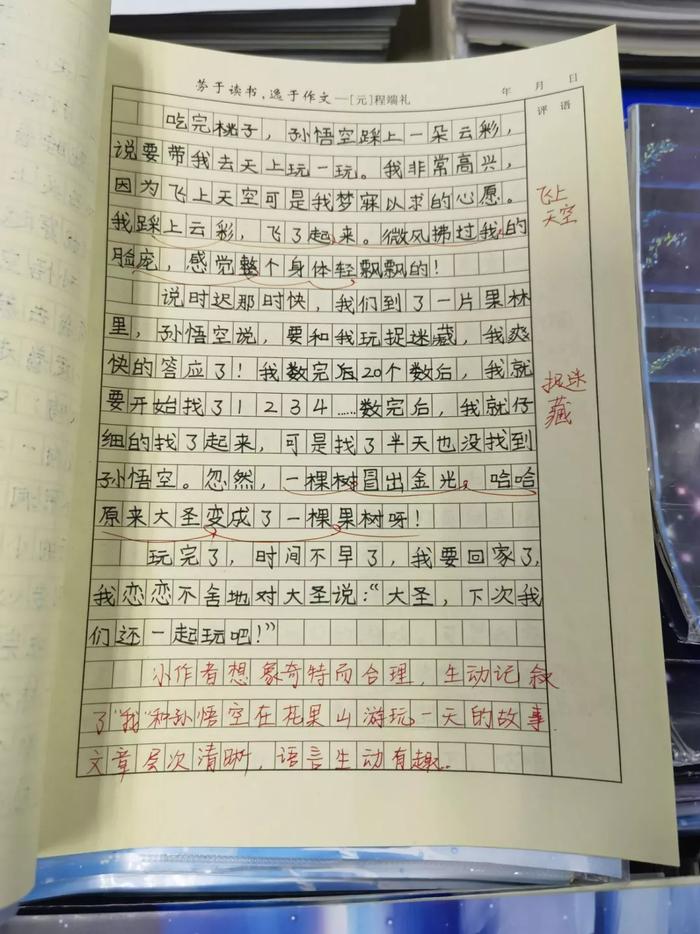 劳于读书，逸于作文—[元]程端礼
年 月 日
评 语
吃完桃子，孙悟空踩上一朵云彩，
说要带我去天上玩一玩。我非常高兴，
因为飞上天空可是我梦寐以求的心愿。
我踩上云彩，飞了起来。微风拂过我的
脸庞，感觉整个身体轻飘飘的！
飞上
天空
说时迟那时快，我们到了一片果林
里，孙悟空说，要和我玩捉迷藏，我爽
快的答应了！我数完后20个数后，我就
要开始找了1234……数完后，我就仔
细的找了起来，可是找了半天也没找到
孙悟空。忽然，一棵树冒出金光，哈哈
原来大圣变成了一棵果树呀！
捉迷
藏
玩完了，时间不早了，我要回家了，
我恋恋不舍地对大圣说：“大圣，下次我
们还一起玩吧！”
小作者想象奇特而合理，生动记叙
了“我”和孙悟空在花果山游玩一天的故事
文章层次清晰，语言生动有趣。